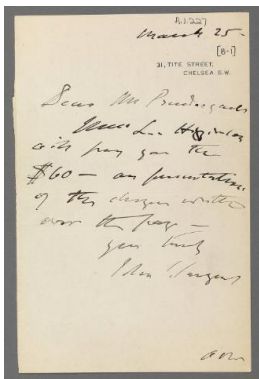 B.1.227
March 25-
[B-1]
31, TITE STREET,
CHELSEA. S.W.
Dear Mr Prendergast
Lee Higginson
will pay you the
$60 — on presentation
of the cheque written
over the page —
yrs truly
John Sargent